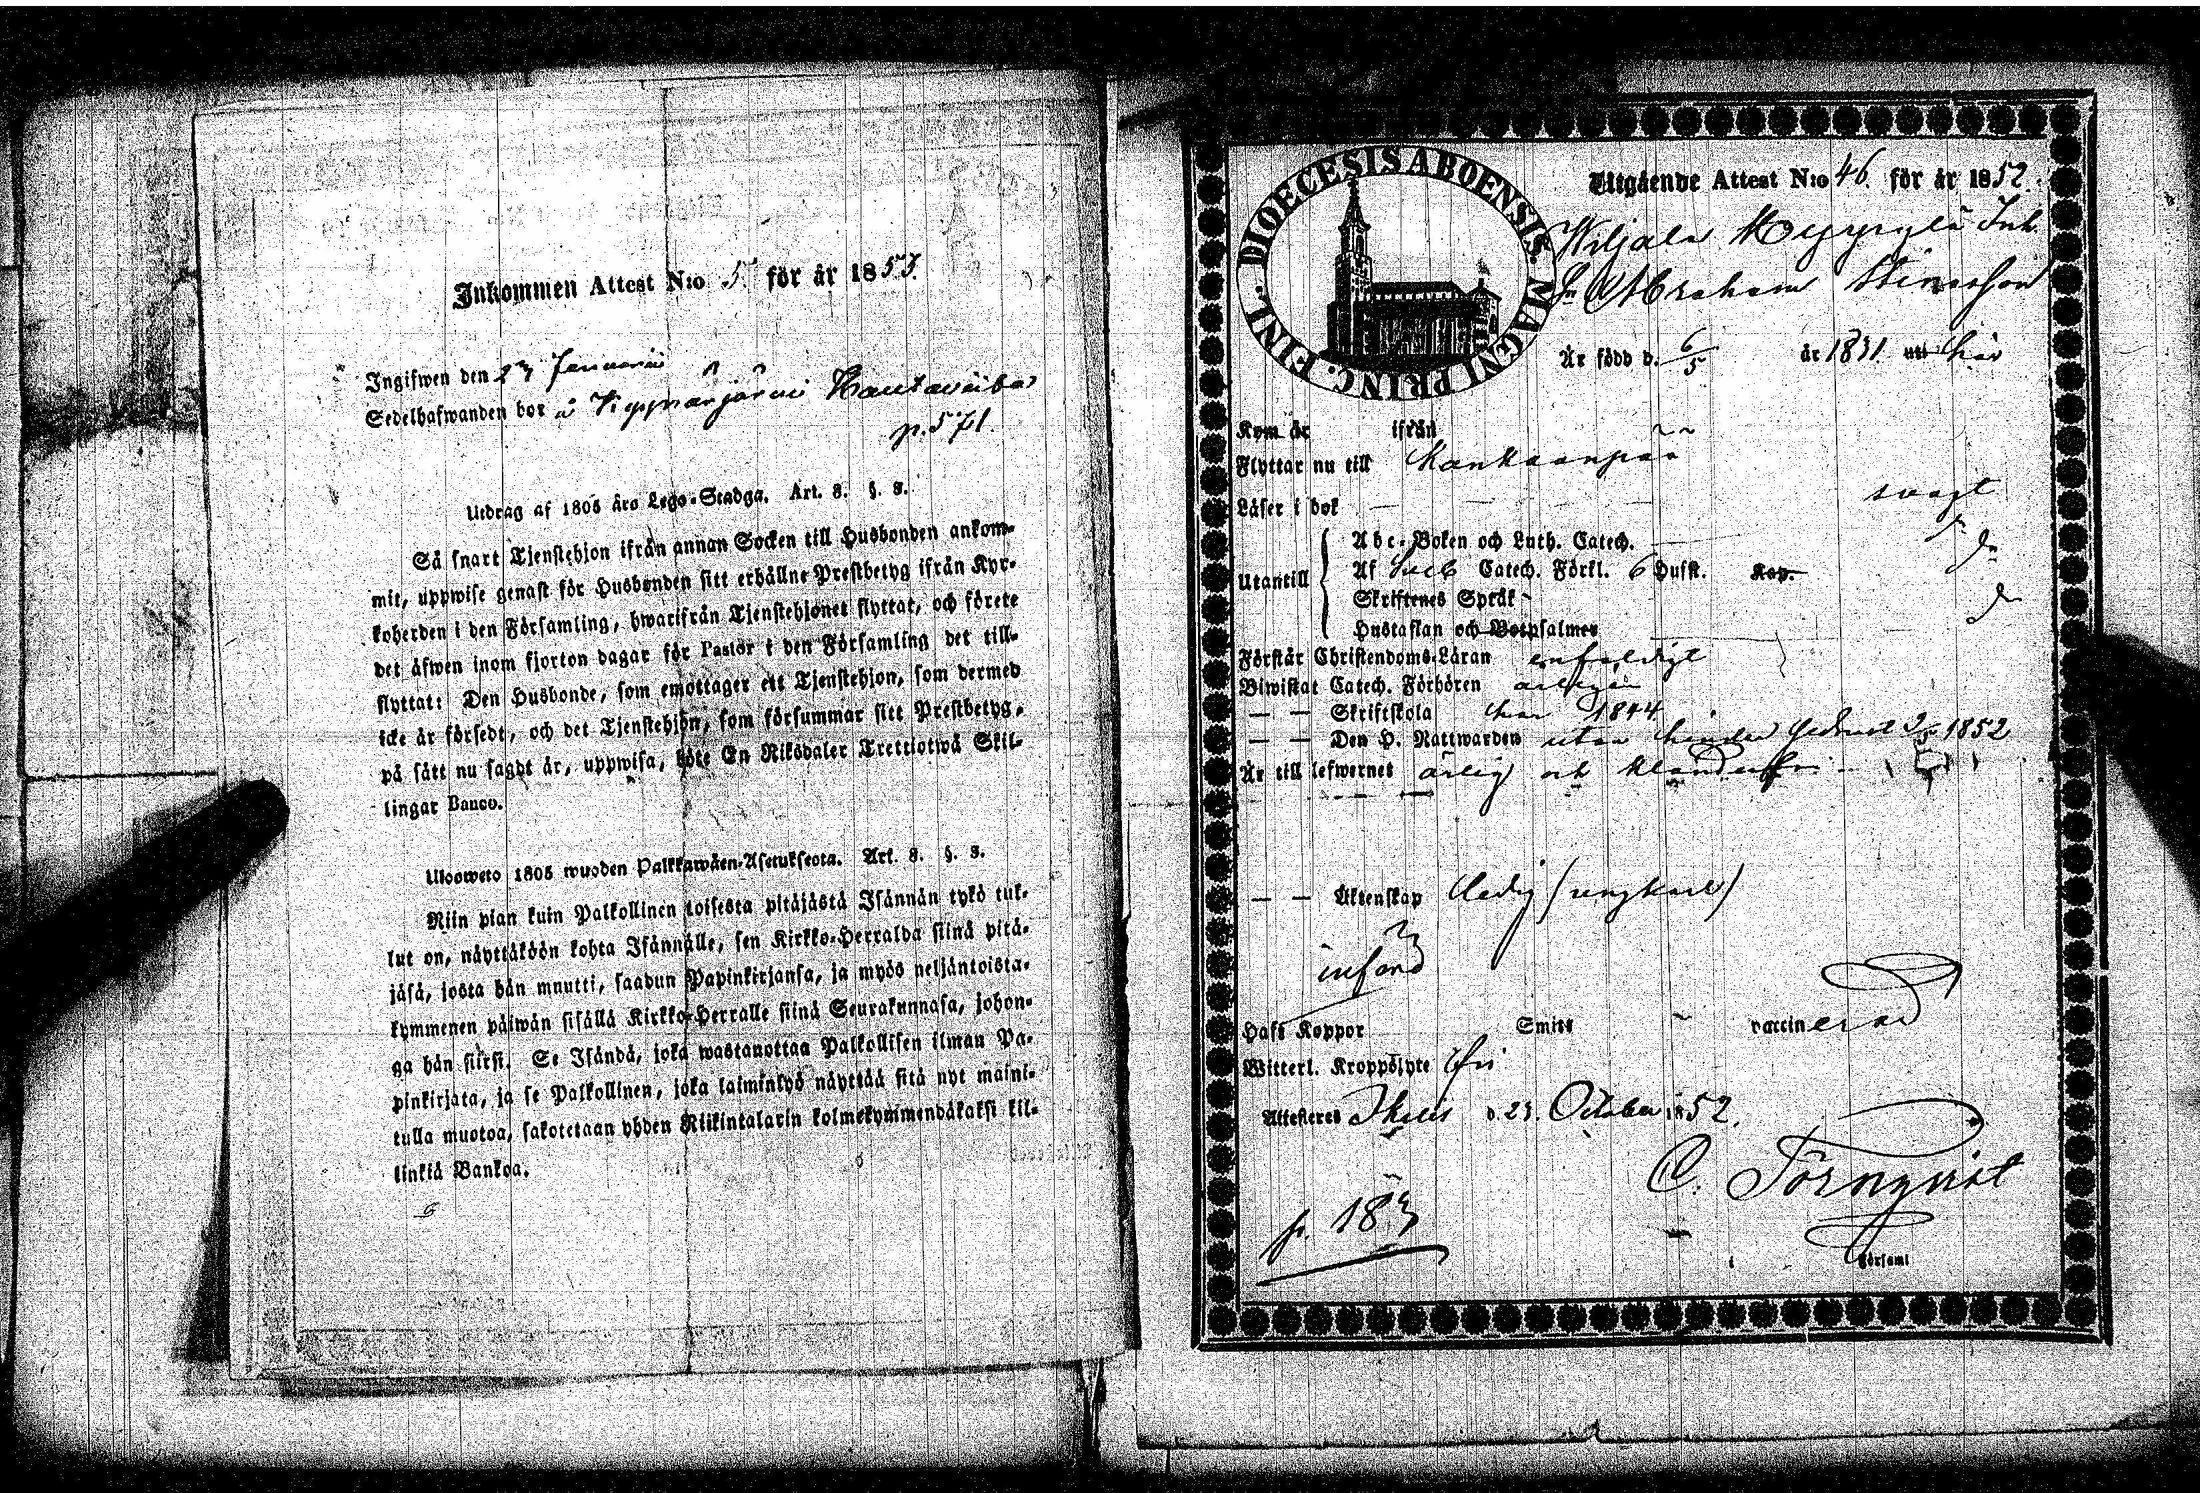 Inkommen Attest N:o 5 för år 1853.
Ingifwen den 23 Januarii
Sedelhafwanden bor å Wepperjärwi
p. 571.
Utdrag af 1805 års Lego-Stadga. Art. 3. §. 3.
Så snart Tjenstehjon ifrån annan Socken till Husbonden ankom-
mit, uppwise genast för Husbonden sitt erhållne Prestbetyg ifrån Kyr-
koherden i den Församling, hwarifrån Tjenstehjonet flyttat, och förete
det äfwen inom fjorton dagar för Pastor i den Församling det till-
flyttat: Den Husbonde, som emottager ett Tjenstehjon, som dermed
icke är försedt, och det Tjenstehjon, som försummar sitt Prestbetyg,
på sätt nu sagdt är, uppwisa, böte En Riksdaler Trettiotwå Skil-
lingar Banco.
Ulosweto 1805 wuoden Palkkawäen-Asetuksesta. Art. 3. §. 3.
Niin pian kuin Palkollinen toisesta pitäjästä Isännän tykö tul-
lut on, näyttäköön kohta Isännälle, sen Kirkko-Herralda siinä pitä-
jäsä, josta hän muutti, saadun Papinkirjansa, ja myös neljäntoista-
kymmenen päiwän sisällä Kirkko-Herralle siinä Seurakunnasa, johon-
ga hän siirsi. Se Isändä, joka wastanottaa Palkollisen ilman Pa-
pinkirjata, ja se Palkollinen, joka laiminlyö näyttää sitä nyt maini-
tulla muotoa, sakotetaan yhden Riikintalarin kolmekymmendäkaksi kil-
linkiä Bankoa.
DIOECESIS ABOENSIS. MAGNI PRINC. FINL.
Utgående Attest N:o 46. för år 1852.
Wiljala Meyrylä Inh.
Sn Abraham
Är född d. 6/5 år 1831 uti här
Kom år ifrån
Flyttar nu till Kankaanpää
Läser i bok svagt
Utantill
Abc-Boken och Luth. Catech. do
Af Sveb Catech. Förkl. 6 Hufst. Kap. do
Skriftenes Språk
Hustaflan och Botpsalmer do
Förstår Christendoms-Läran enfaldigt
Biwistat Catech. Förhören årligen
— — Skriftskola här 1844
— — Den H. Nattwarden utan hinder 1852
Är till lefwernet ärlig och klanderfri
— — Äktenskap Ledig (ungkarl)
införd
Haft Koppor Smitt vaccinerad
Witterl. Kroppslyte fri
Attesteres Ikalis d. 23. October 1852.
C. Törnqvist
p. 183
i Församl